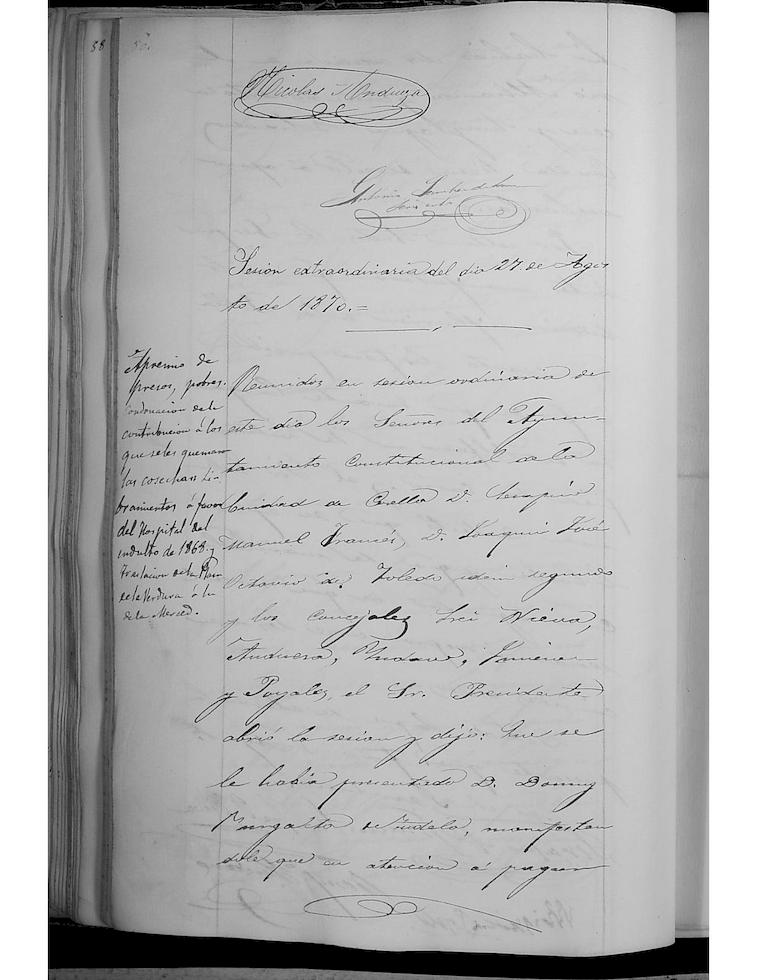 88
Nicolas Andueza
Antonio Sanchez de
Secretario
Sesion extraordinaria del dia 27 de Agos
to de 1870.=
Apremio de
presos, pobres.
Condonacion de la
contribucion á los
que se les quemaron
las cosechas Li-
bramientos á favor
del Hospital del
indulto de 1868. y
Traslacion de la Plaza
de la Verdura á la
de la Merced.
Reunidos en sesion ordinaria de
este dia los Señores del Ayun-
tamiento Constitucional de la
Ciudad de Corella D. Serapio
Manuel Francés, D. Joaquin José
Octavio de Toledo idem segundo
y los Concejales Nieva,
Andueza, Jimenez
y Poyales, el Sr. Presidente
abrió la sesion y dijo: Que se
le habia presentado D. Domingo
de Tudela, manifestan
dole que en atencion á pagar